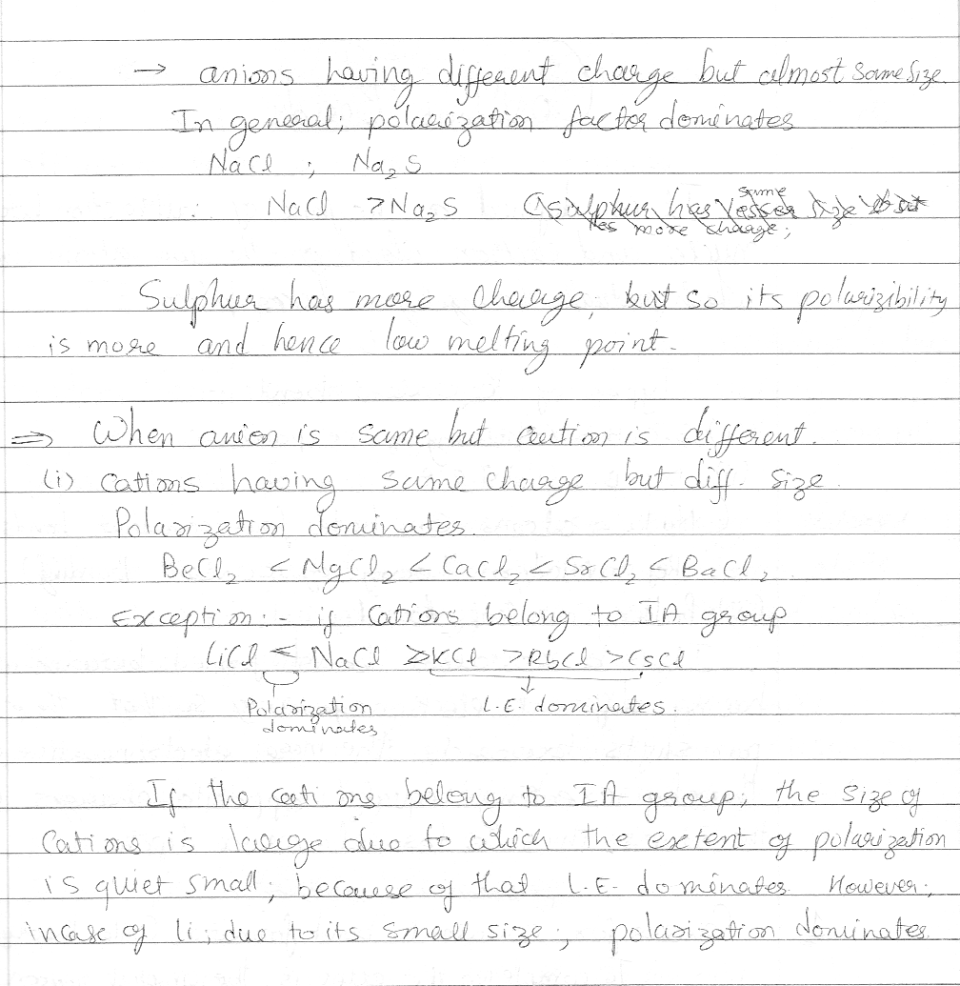 → anions having different charge but almost same size.
In general; polarization factor dominates
NaCl ; Na₂S
∴ NaCl > Na₂S (As sulphur has lesser same size but
has more charge;
Sulphur has more charge, but so its polarizibility
is more and hence low melting point.
⇒ When anion is same but cation is different.
(i) Cations having same charge but diff. size.
Polarization dominates.
BeCl₂ < MgCl₂ < CaCl₂ < SrCl₂ < BaCl₂
Exception:- if Cations belong to IA group
LiCl < NaCl > KCl > RbCl > CsCl
Polarization L.E. dominates.
dominates
If the cations belong to IA group; the size of
Cations is large due to which the extent of polarization
is quiet small; because of that L.E. dominates. However;
incase of li; due to its small size; polarization dominates.